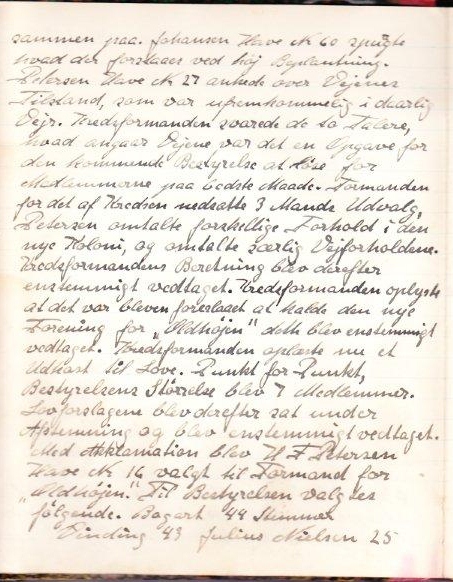 sammen paa. Johansen Have Nr 60 spurgte
hvad der forstaaes ved høj Beplantning.
Petersen Have Nr 27 ankede over Vejenes
Tilstand, som var ufremkommelig i daarlig
Vejr. Kredsformanden svarede de to Talere,
hvad angaar Vejene var det en Opgave for
den kommende Bestyrelse at løse for
Medlemmerne paa bedste Maade. Formanden
for det af Kredsen nedsatte 3 Mands Udvalg,
Petersen omtalte forskellige Forhold i den
nye Koloni, og omtalte særlig Vejforholdene.
Kredsformandens Beretning blev derefter
enstemmigt vedtaget. Kredsformanden oplyste
at det var bleven foreslaaet at kalde den nye
Forening for "Oldhøjen" dette blev enstemmigt
vedtaget. Kredsformanden oplæste nu et
Udkast til Love. Punkt for Punkt,
Bestyrelsens Størrelse blev 7 Medlemmer.
Lovforslagene blev derefter sat under
Afstemning og blev enstemmigt vedtaget.
Med Akklamation blev H F Petersen
Have Nr 16 valgt til Formand for
"Oldhøjen". Til Bestyrelsen valgtes
følgende. Bogart 44 Stemmer
Vinding 43 Julius Nielsen 25